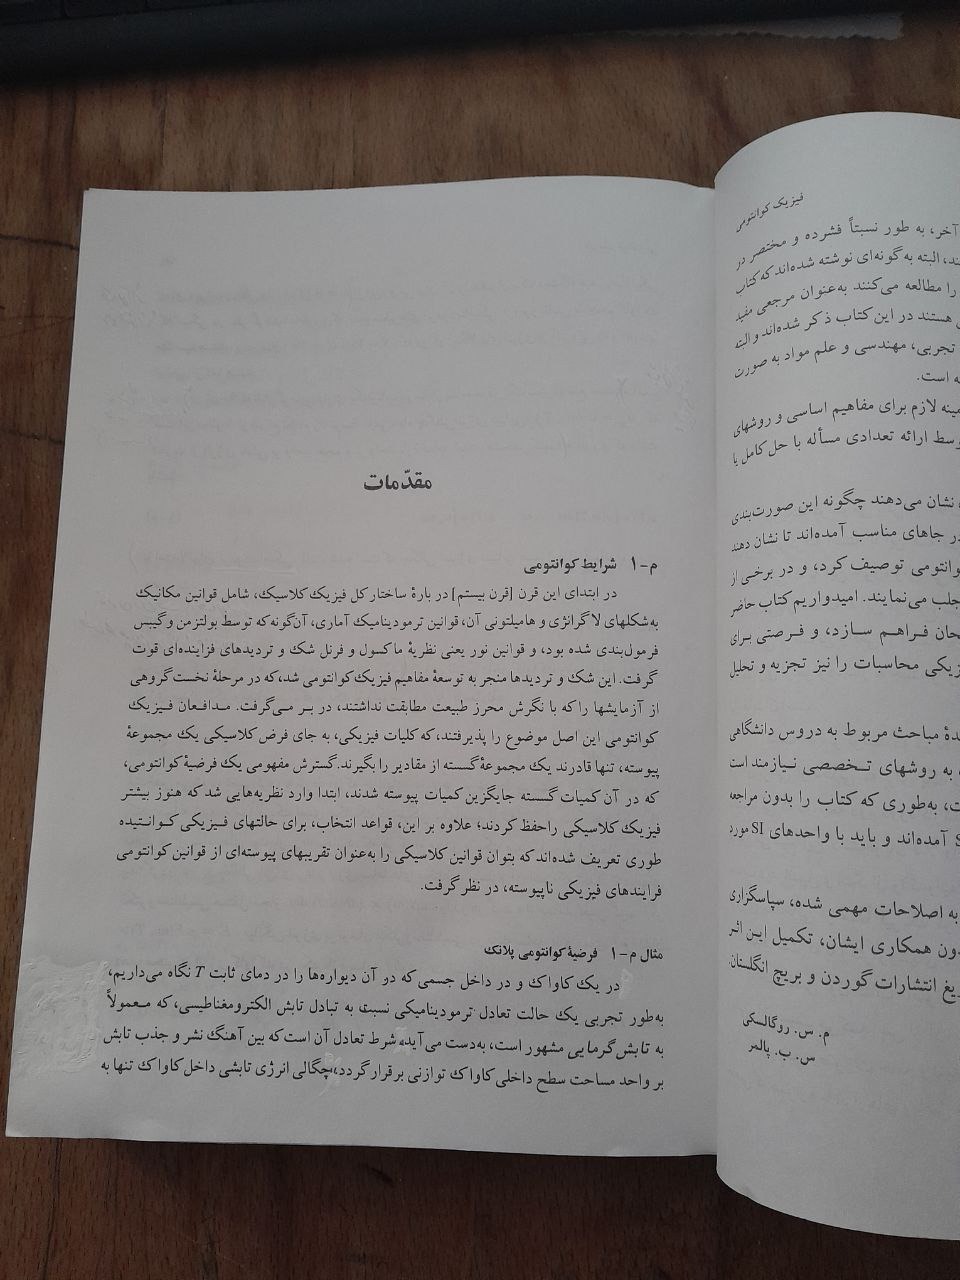 مقدّمات
م-۱ شرایط کوانتومی
در ابتدای این قرن [قرن بیستم] در بارهٔ ساختار کل فیزیک کلاسیک، شامل قوانین مکانیک
به‌شکلهای لاگرانژی و هامیلتونی آن، قوانین ترمودینامیک آماری، آن‌گونه که توسط بولتزمن و گیبس
فرمول‌بندی شده بود، و قوانین نور یعنی نظریهٔ ماکسول و فرنل شک و تردیدهای فزاینده‌ای قوت
گرفت. این شک و تردیدها منجر به توسعهٔ مفاهیم فیزیک کوانتومی شد، که در مرحلهٔ نخست گروهی
از آزمایشها را که با نگرش محرز طبیعت مطابقت نداشتند، در بر می‌گرفت. مدافعان فیزیک
کوانتومی این اصل موضوع را پذیرفتند، که کلیات فیزیکی، به جای فرض کلاسیکی یک مجموعهٔ
پیوسته، تنها قادرند یک مجموعهٔ گسسته از مقادیر را بگیرند. گسترش مفهومی یک فرضیهٔ کوانتومی،
که در آن کمیات گسسته جایگزین کمیات پیوسته شدند، ابتدا وارد نظریه‌هایی شد که هنوز بیشتر
فیزیک کلاسیکی را حفظ کردند؛ علاوه بر این، قواعد انتخاب، برای حالتهای فیزیکی کوانتیده
طوری تعریف شده‌اند که بتوان قوانین کلاسیکی را به‌عنوان تقریبهای پیوسته‌ای از قوانین کوانتومی
فرایندهای فیزیکی ناپیوسته، در نظر گرفت.
مثال م-۱ فرضیهٔ کوانتومی پلانک
در یک کاواک و در داخل جسمی که دو آن دیواره‌ها را در دمای ثابت T نگاه می‌داریم،
به‌طور تجربی یک حالت تعادل ترمودینامیکی نسبت به تبادل تابش الکترومغناطیسی، که معمولاً
به تابش گرمایی مشهور است، به‌دست می‌آید. شرط تعادل آن است که بین آهنگ نشر و جذب تابش
بر واحد مساحت سطح داخلی کاواک توازنی برقرار گردد، چگالی انرژی تابشی داخل کاواک تنها به
فیزیک کوانتومی
آخر، به طور نسبتاً فشرده و مختصر در
ند، البته به گونه‌ای نوشته شده‌اند که کتاب
را مطالعه می‌کنند به‌عنوان مرجعی مفید
ی هستند در این کتاب ذکر شده‌اند و البته
تجربی، مهندسی و علم مواد به صورت
ه است.
مینه لازم برای مفاهیم اساسی و روشهای
وسط ارائه تعدادی مسأله با حل کامل یا
نشان می‌دهند چگونه این صورت‌بندی
در جاهای مناسب آمده‌اند تا نشان دهند
وانتومی توصیف کرد، و در برخی از
جلب می‌نمایند. امیدواریم کتاب حاضر
حان فراهم سازد، و فرصتی برای
زیکی محاسبات را نیز تجزیه و تحلیل
دهٔ مباحث مربوط به دروس دانشگاهی
، به روشهای تخصصی نیازمند است
ت، به‌طوری که کتاب را بدون مراجعه
S آمده‌اند و باید با واحدهای SI مورد
به اصلاحات مهمی شده، سپاسگزاری
دون همکاری ایشان، تکمیل این اثر
ریغ انتشارات گوردن و بریچ انگلستان،
م. س. روگالسکی
س. ب. پالمر